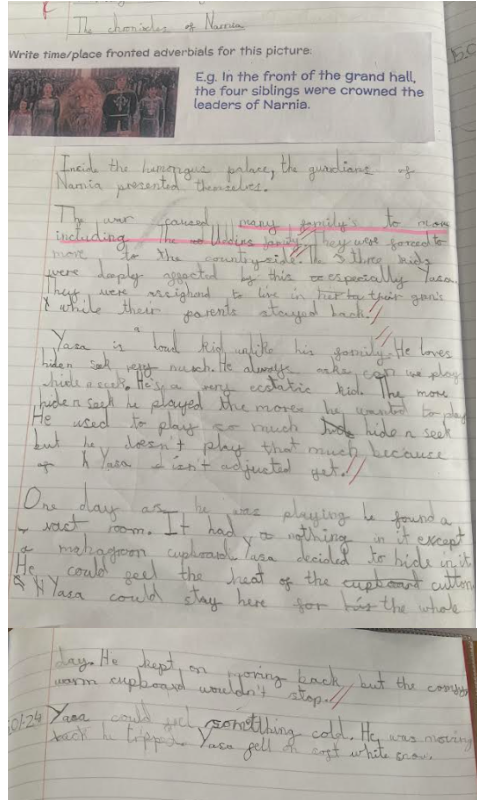 The chronicles of Narnia
Write time/place fronted adverbials for this picture:
E.g. In the front of the grand hall,
the four siblings were crowned the
leaders of Narnia.
Inside the humongus palace, the guardians of
Narnia presented themselves.
The war caused many family's to move
including the family. They were forced to
move to the countryside. The 3 three kids
were deeply affected by this especially Yasa.
They were to live in their gran's
while their parents stayed back.
Yasa is a loud kid unlike his family. He loves
hiden seek very much. He always asks can we play
hide n seek. He's a very ecstatic kid. The more
hide n seek he played the more he wanted to play
He used to play so much hide n seek
but he doesn't play that much because
Yasa isn't adjusted yet.
One day as he was playing he found a
vact room. It had nothing in it except
a mahagoon cupboard Yasa decided to hide in it
He could feel the heat of the cupboard
Yasa could stay here for the whole
day. He kept on moving back but the
warm cupboard wouldn't stop.
Yasa could feel something cold. He was moving
back he tripped. Yasa fell on white snow.